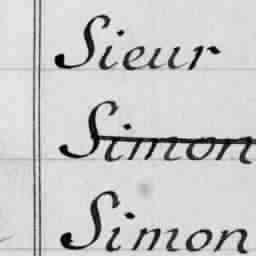 Sieur
Simon
Simon